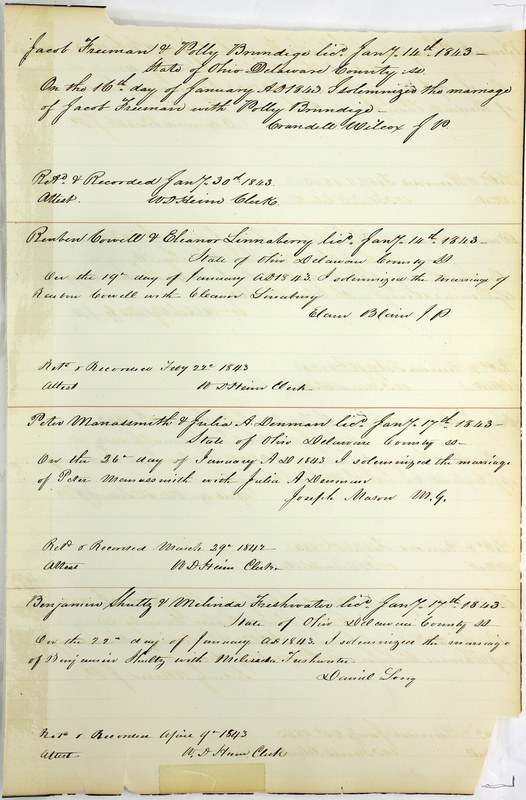 Jacob Freeman & Polly Brundige licd. Jany. 14th. 1843 -
State of Ohio Delaware County ss
On the 16th. day of January AD 1843 I solemnized the marriage
of Jacob Freeman with Polly Brundige -
Crandell Wilcox J P.
Retd. & Recorded Jany. 30th 1843.
Attest. W D Heim Clerk
Reuben Cowell & Eleanor Linnaberry licd. Jany. 14th. 1843 -
State of Ohio Delaware County SS
On the 19th day of January AD 1843 I solemnized the marriage of
Reuben Cowell with Eleanor Linabury
Elam Blain J P
Retd. & Recorded Feby 22d 1843
Attest W D Heim Clerk
Peter Manassmith & Julia A Denman licd. Jany. 17th. 1843 -
State of Ohio Delaware County ss -
On the 26th day of January A D 1843 I solemnized the marriage
of Peter Manassmith with Julia A Denman
Joseph Mason M. G.
Retd. & Recorded March 29th 1842
Attest W D Heim Clerk
Benjamin Shultz & Melinda Freshwater licd. Jany. 17th. 1843 -
State of Ohio Delaware County SS
On the 22d day of January AD 1843. I solemnized the marriage
of Benjamin Shultz with Melissda Freshwater
Daniel Long
Retd. & Recorded April 9th 1843
Attest W. D Heim Clerk